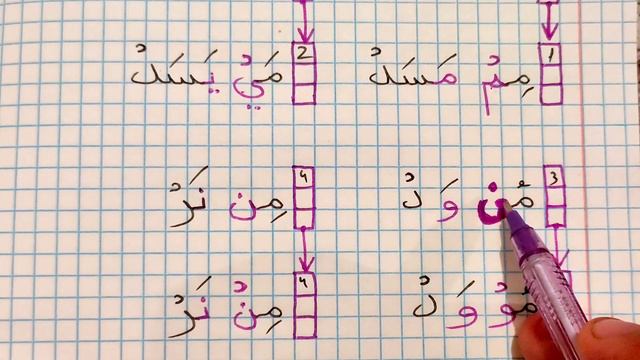 1 مِمْ مَسَدْ
2 مَيْ يَسَدْ
3 مُن وَدْ
4 مِن نَرْ
مُوْ وَدْ
4 مِنْ نَرْ